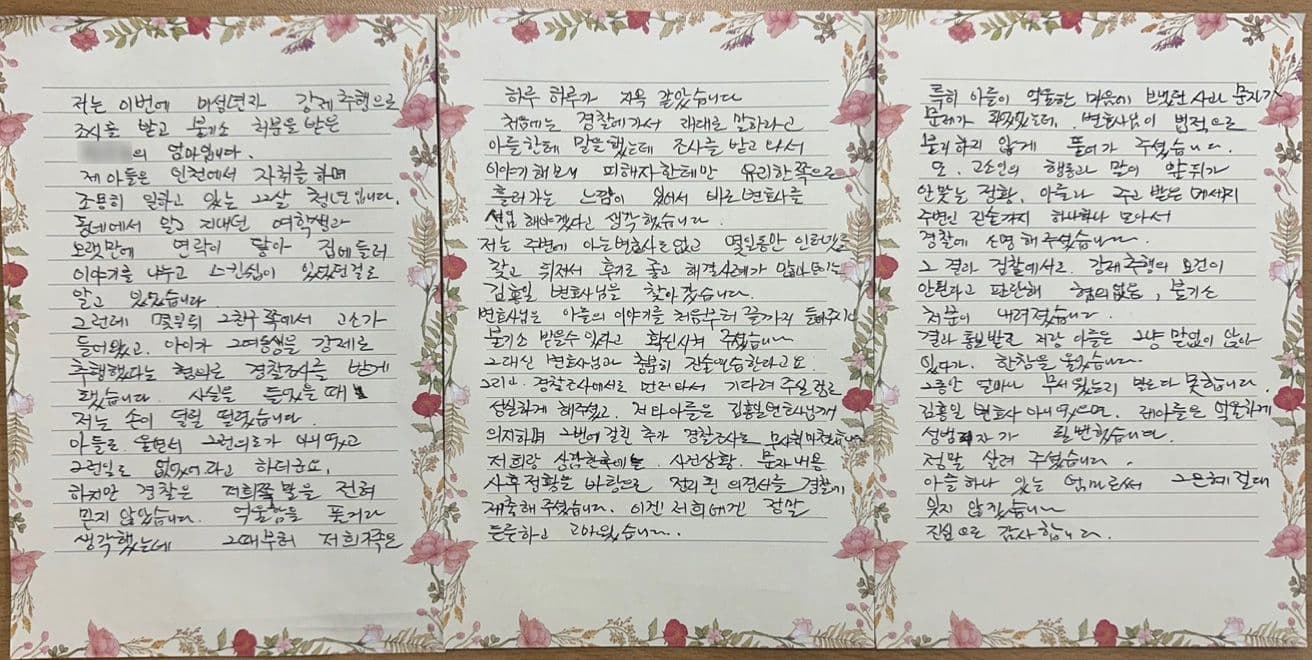 저는 이번에 미성년자 강제추행으로
조사를 받고 불기소 처분을 받은
의 엄마입니다.
제 아들은 인천에서 자취를 하며
조용히 일하고 있는 22살 청년입니다.
동네에서 알고 지내던 여학생과
오랫만에 연락이 닿아 집에 들러
이야기를 나누고 스킨십이 있었던걸로
알고 있었습니다
그런데 몇일뒤 그친구 쪽에서 고소가
들어왔고, 아이가 그여동생을 강제로
추행했다는 혐의로 경찰조사를 받게
됐습니다. 사실을 들었을 때
저는 손이 덜덜 떨렸습니다.
아들도 울면서 그런의도가 아니었고
그런일도 없었어라고 하더군요,
하지만 경찰은 저희쪽 말을 전혀
믿지 않았습니다. 억울함을 풀거라
생각했는데 그때부터 저희가족은
하루 하루가 지옥 같았습니다
처음에는 경찰에가서 제대로 말하라고
아들한테 말을했는데 조사를 받고 나서
이야기해보니 피해자한테만 유리한쪽으로
흘러가는 느낌이 있어서 바로 변호사를
선임 해야겠다고 생각했습니다
저는 주변에 아는변호사도없고 몇일동안 인터넷으로
찾고 뒤져서 후기도 좋고 해결사례가 많아 보이는
김홍일 변호사님을 찾아갔습니다.
변호사님은 아들의 이야기를 처음부터 끝까지 들어주시고
불기소 받을수 있다고 확신시켜 주셨습니다
그대신 변호사님과 충분히 진술연습한다고요
그리고. 경찰조사에서도 먼저와서 기다려 주실 정도
성실하게 해주셨고, 저와아들은 김홍일변호사님께
의지하며 그번에 걸친 추가 경찰조사도 무사히마쳤습니다
저희랑 상담한후에도 사건상황. 문자내용
사후정황을 바탕으로 정리된 의견서를 경찰에
제출해 주셨습니다. 이건 저희에겐 정말
든든하고 고마웠습니다.
특히 아들이 억울한 마음에 보냈던 사과 문자가
문제가 됐었는데, 변호사님이 법적으로
불리하지 않게 풀어가 주셨습니다.
또. 고소인의 행동과 말이 앞뒤가
안맞는 정황, 아들과 주고 받은 메세지
주변인 진술까지 하나하나 모아서
경찰에 소명해주셨습니다.
그 결과 검찰에서도 강제추행의 요건이
안된다고 판단해 혐의없음, 불기소
처분이 내려졌습니다.
결과 통보받고 저랑 아들은 그냥 말없이 앉아
있다가. 한참을 울었습니다.
그동안 얼마나 무서웠는지 말로다 못합니다.
김홍일 변호사 아니었으면. 제아들은 억울하게
성범죄자가 될뻔했습니다.
정말 살려 주셨습니다.
아들 하나 있는 엄마로써 그은혜 절대
잊지 않겠습니다
진심으로 감사합니다.